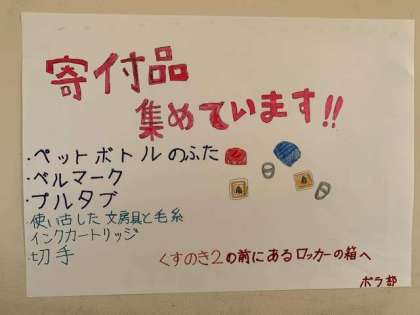 寄付品
集めています!!
・ペットボトルのふた
・ベルマーク
・プルタブ
・使い古した文房具と毛糸
インクカートリッジ
・切手
くすのき2の前にあるロッカーの箱へ
ボラ部